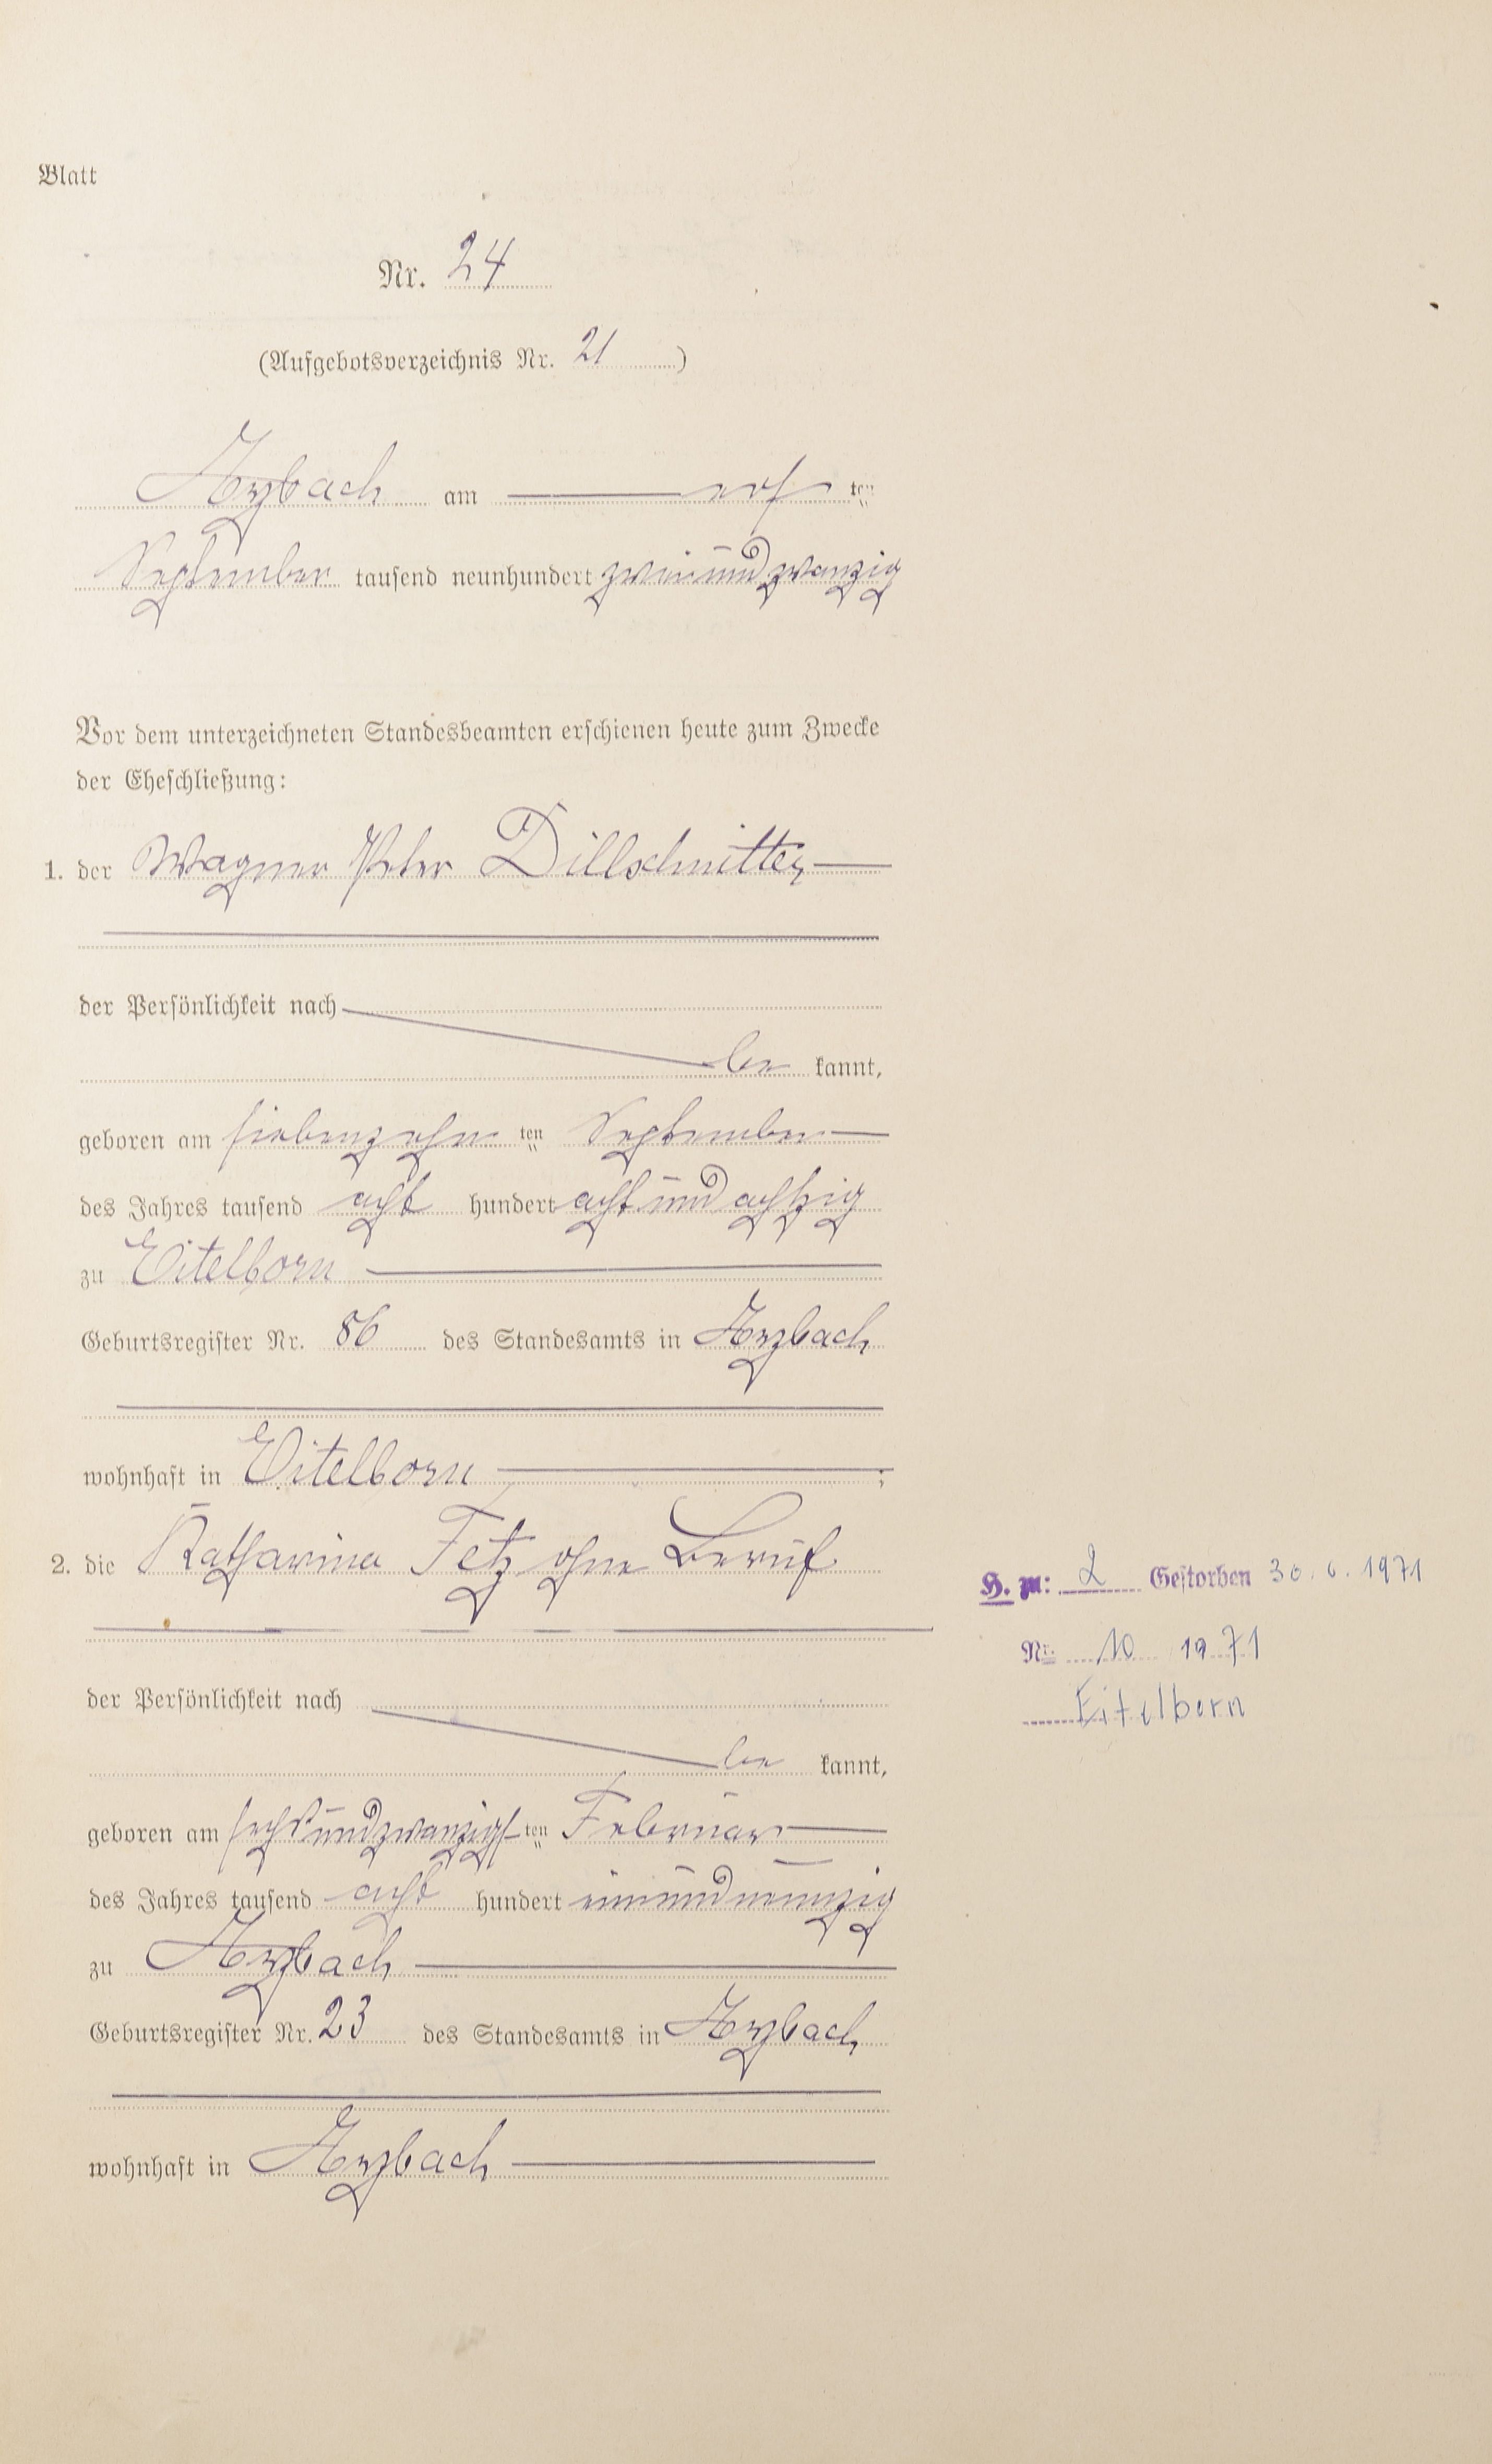 Blatt
Nr. 24
(Aufgebotsverzeichnis Nr. 21 )
Arzbach am erſ ten
September tausend neunhundert zweiundzwanzig
Vor dem unterzeichneten Standesbeamten erschienen heute zum Zwecke
der Eheschließung:
1. der Wagner Peter Dillschnitter
der Persönlichkeit nach
be kannt,
geboren am siebenzehn ten September
des Jahres tausend acht hundert acht und achtzig
zu Eitelborn
Geburtsregister Nr. 86 des Standesamts in Arzbach
wohnhaft in Eitelborn ;
2. die Katharina Fetz ohne Beruf
H. zu: 2 Gestorben 30.6.1971
Nr. 10 1971
Eitelborn
der Persönlichkeit nach
be kannt,
geboren am sechsundzwanzigs ten Februar
des Jahres tausend acht hundert einundneunzig
zu Arzbach
Geburtsregister Nr. 23 des Standesamts in Arzbach
wohnhaft in Arzbach